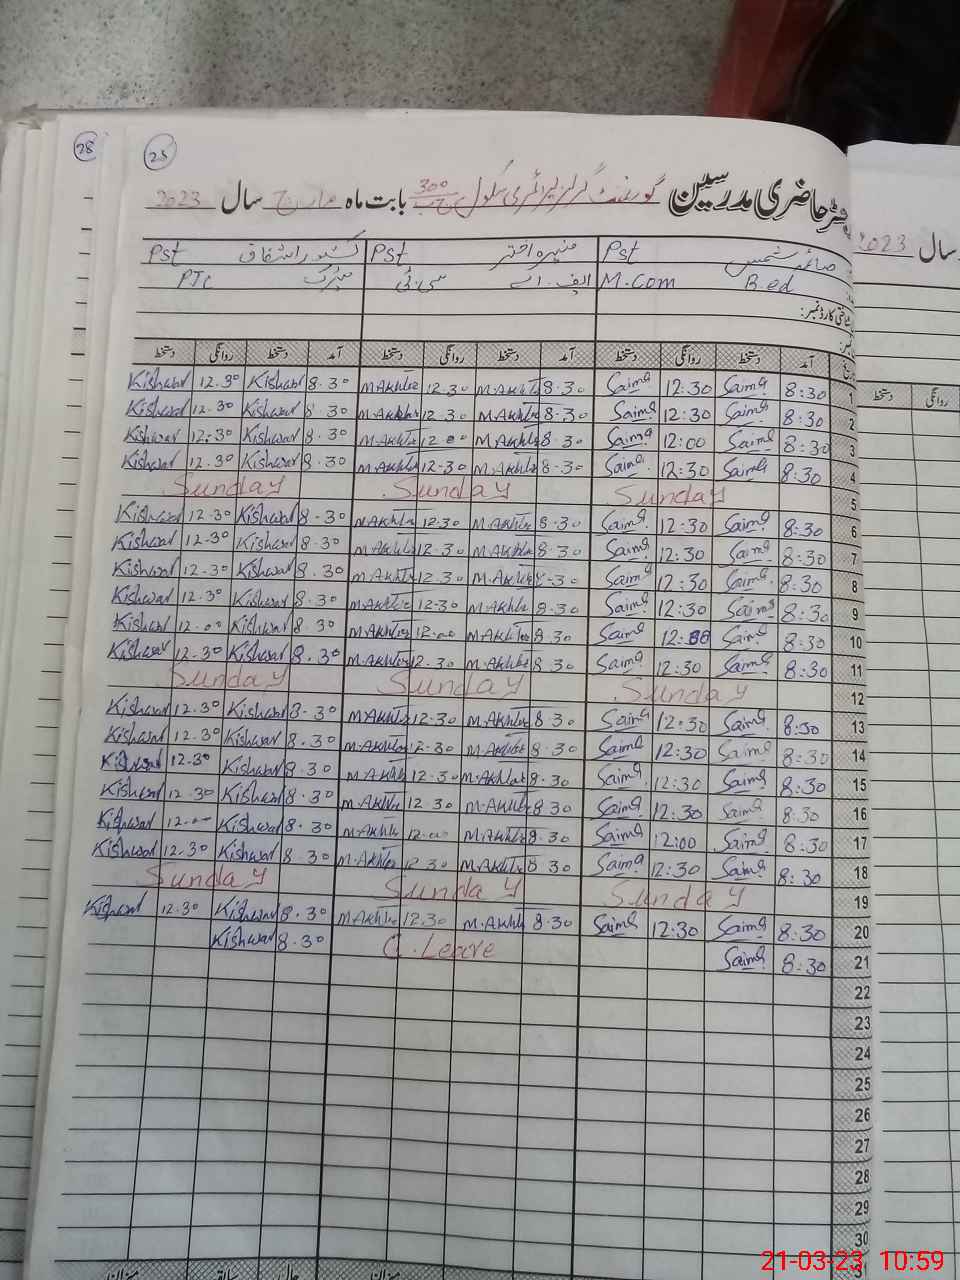 28
25
رجسٹر حاضری مدرسین گورنمنٹ گرلز پرائمری سکول 300 ج ب بابت ماہ مارچ سال 2023
سال 2023
صائمہ شمس Pst منیرہ اختر Pst کشور اشفاق Pst
B.ed M.Com ایف.اے سی.ٹی میٹرک PTC
شناختی کارڈ نمبر:
آمد دستخط روانگی دستخط آمد دستخط روانگی دستخط آمد دستخط روانگی دستخط
روانگی دستخط
Kishwar 12.30 Kishwar 8.30 M.Akhter 12.30 M.Akhter 8.30 Saima 12:30 Saima 8:30 1
Kishwar 12.30 Kishwar 8.30 M.Akhter 12.30 M.Akhter 8.30 Saima 12:30 Saima 8:30 2
Kishwar 12:30 Kishwar 8.30 M.Akhter 12.00 M.Akhter 8.30 Saima 12:00 Saima 8:30 3
Kishwar 12.30 Kishwar 8.30 M.Akhter 12.30 M.Akhter 8.30 Saima 12:30 Saima 8:30 4
Sunday Sunday Sunday 5
Kishwar 12.30 Kishwar 8.30 M.Akhter 12.30 M.Akhter 8.30 Saima 12:30 Saima 8:30 6
Kishwar 12.30 Kishwar 8.30 M.Akhter 12.30 M.Akhter 8.30 Saima 12:30 Saima 8:30 7
Kishwar 12.30 Kishwar 8.30 M.Akhter 12.30 M.Akhter 8.30 Saima 12:30 Saima 8:30 8
Kishwar 12.30 Kishwar 8.30 M.Akhter 12.30 M.Akhter 8.30 Saima 12:30 Saima 8:30 9
Kishwar 12.00 Kishwar 8.30 M.Akhter 12.00 M.Akhter 8.30 Saima 12:00 Saima 8:30 10
Kishwar 12.30 Kishwar 8.30 M.Akhter 12.30 M.Akhter 8.30 Saima 12:30 Saima 8:30 11
Sunday Sunday Sunday 12
Kishwar 12.30 Kishwar 8.30 M.Akhter 12.30 M.Akhter 8.30 Saima 12:30 Saima 8:30 13
Kishwar 12.30 Kishwar 8.30 M.Akhter 12.30 M.Akhter 8.30 Saima 12:30 Saima 8:30 14
Kishwar 12.30 Kishwar 8.30 M.Akhter 12.30 M.Akhter 8.30 Saima 12:30 Saima 8:30 15
Kishwar 12.30 Kishwar 8.30 M.Akhter 12.30 M.Akhter 8.30 Saima 12:30 Saima 8:30 16
Kishwar 12.00 Kishwar 8.30 M.Akhter 12.00 M.Akhter 8.30 Saima 12:00 Saima 8:30 17
Kishwar 12.30 Kishwar 8.30 M.Akhter 12.30 M.Akhter 8.30 Saima 12:30 Saima 8:30 18
Sunday Sunday Sunday 19
Kishwar 12.30 Kishwar 8.30 M.Akhter 12.30 M.Akhter 8.30 Saima 12:30 Saima 8:30 20
Kishwar 8.30 C.Leave Saima 8:30 21
22
23
24
25
26
27
28
29
30
31
میزان حال سابقہ میزان
21-03-23 10:59